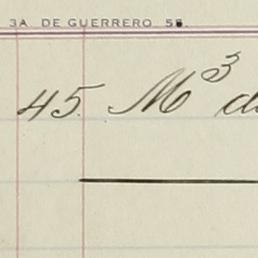 3A DE GUERRERO 58.
45. M³ d